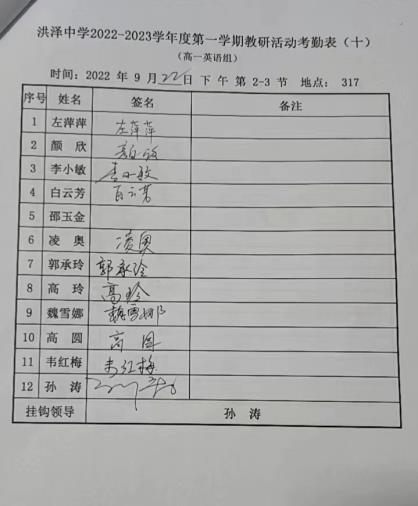 洪泽中学2022-2023学年度第一学期教研活动考勤表（十）
（高一英语组）
时间：2022 年 9 月 22 日 下 午 第 2-3 节 地点： 317
序号 姓名 签名 备注
1 左萍萍 左萍萍
2 颜 欣
3 李小敏 李小敏
4 白云芳 白云芳
5 邵玉金
6 凌 奥 凌奥
7 郭承玲 郭承玲
8 高 玲 高玲
9 魏雪娜 魏雪娜
10 高 圆 高圆
11 韦红梅 韦红梅
12 孙 涛
挂钩领导 孙 涛